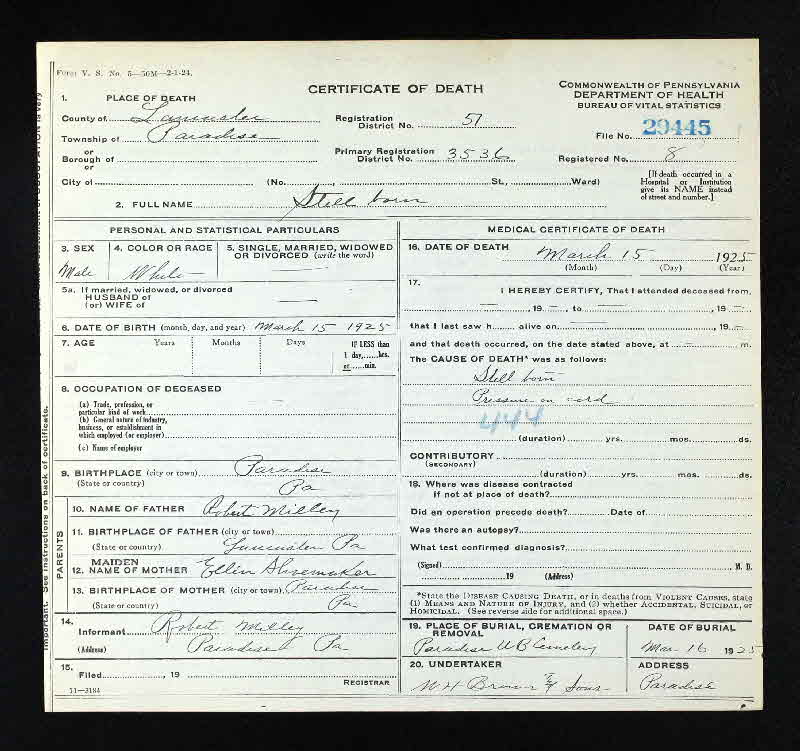 Form V. S. No. 5—50M—2-1-24.
CERTIFICATE OF DEATH
COMMONWEALTH OF PENNSYLVANIA
DEPARTMENT OF HEALTH
BUREAU OF VITAL STATISTICS
1. PLACE OF DEATH
County of Lancaster
Township of Paradise
or
Borough of
or
City of (No. , St., Ward)
Registration District No. 51
Primary Registration District No. 3536
File No. 29445
Registered No. 8
[If death occurred in a Hospital or Institution give its NAME instead of street and number.]
2. FULL NAME Still born
PERSONAL AND STATISTICAL PARTICULARS
3. SEX
Male
4. COLOR OR RACE
White
5. SINGLE, MARRIED, WIDOWED OR DIVORCED (write the word)
5a. If married, widowed, or divorced
HUSBAND of
(or) WIFE of
6. DATE OF BIRTH (month, day, and year) March 15 1925
7. AGE Years Months Days IF LESS than
1 day,......hrs.
or......min.
8. OCCUPATION OF DECEASED
(a) Trade, profession, or
particular kind of work
(b) General nature of industry,
business, or establishment in
which employed (or employer)
(c) Name of employer
9. BIRTHPLACE (city or town) Paradise
(State or country) Pa
PARENTS
10. NAME OF FATHER Robert Milley
11. BIRTHPLACE OF FATHER (city or town)
(State or country) Lancaster Pa
12. MAIDEN NAME OF MOTHER Ellen Shoemaker
13. BIRTHPLACE OF MOTHER (city or town) Paradise
(State or country) Pa
14.
Informant Robert Milley
(Address) Paradise Pa
15.
Filed , 19
REGISTRAR
11-3184
MEDICAL CERTIFICATE OF DEATH
16. DATE OF DEATH March 15 1925
(Month) (Day) (Year)
17.
I HEREBY CERTIFY, That I attended deceased from
, 19 , to , 19
that I last saw h alive on , 19
and that death occurred, on the date stated above, at m.
The CAUSE OF DEATH* was as follows:
Still born
Pressure on cord
444
(duration) yrs. mos. ds.
CONTRIBUTORY
(SECONDARY)
(duration) yrs. mos. ds.
18. Where was disease contracted
if not at place of death?
Did an operation precede death? Date of
Was there an autopsy?
What test confirmed diagnosis?
(Signed) M. D.
19 (Address)
*State the DISEASE CAUSING DEATH, or in deaths from VIOLENT CAUSES, state
(1) MEANS AND NATURE OF INJURY, and (2) whether ACCIDENTAL, SUICIDAL, or
HOMICIDAL. (See reverse side for additional space.)
19. PLACE OF BURIAL, CREMATION OR REMOVAL
Paradise UB Cemetery
DATE OF BURIAL
Mar 16 1925
20. UNDERTAKER
ADDRESS
Paradise
Important. See instructions on back of certificate.